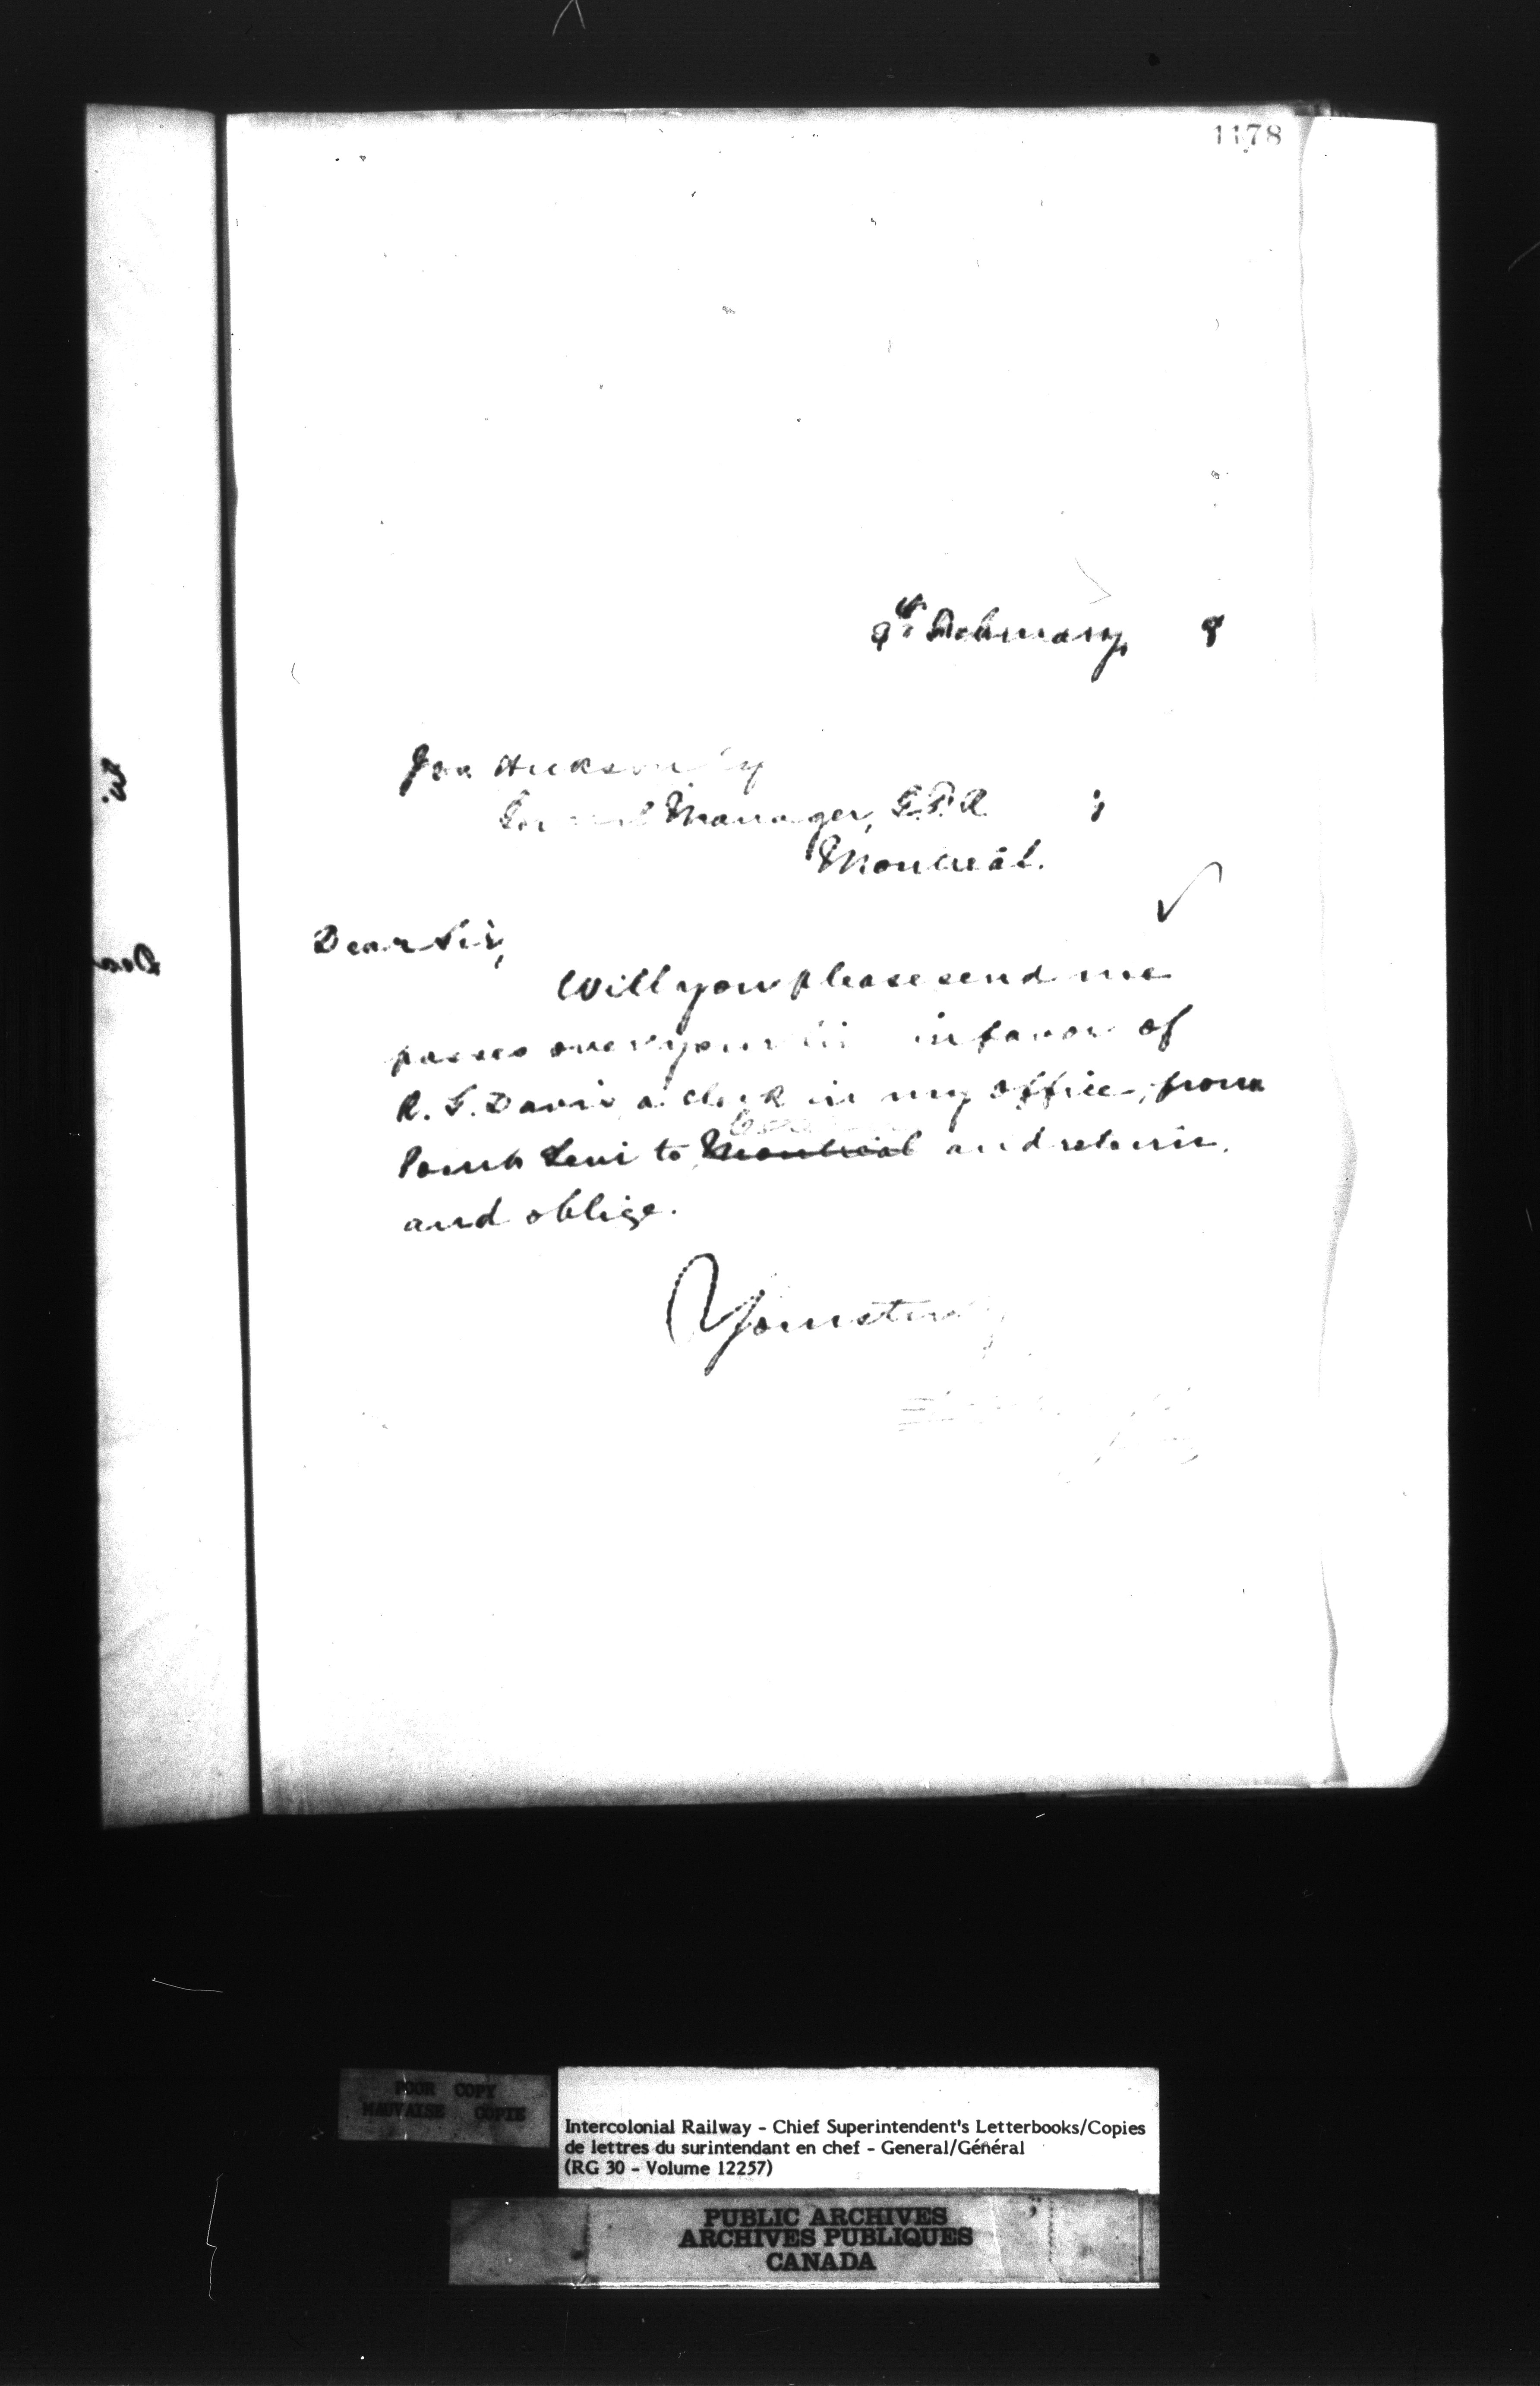 1178
9th February, 8
Jos Hickson Esq
General Manager, G.T.R.
Montreal.
Dear Sir,
Will you please send me
passes over your in favor of
R. S. Davis, a clerk in my office, from
Point Levi to Montreal and return,
and oblige.
Yours truly
POOR COPY
MAUVAISE COPIE
Intercolonial Railway - Chief Superintendent's Letterbooks/Copies
de lettres du surintendant en chef - General/Général
(RG 30 - Volume 12257)
PUBLIC ARCHIVES
ARCHIVES PUBLIQUES
CANADA